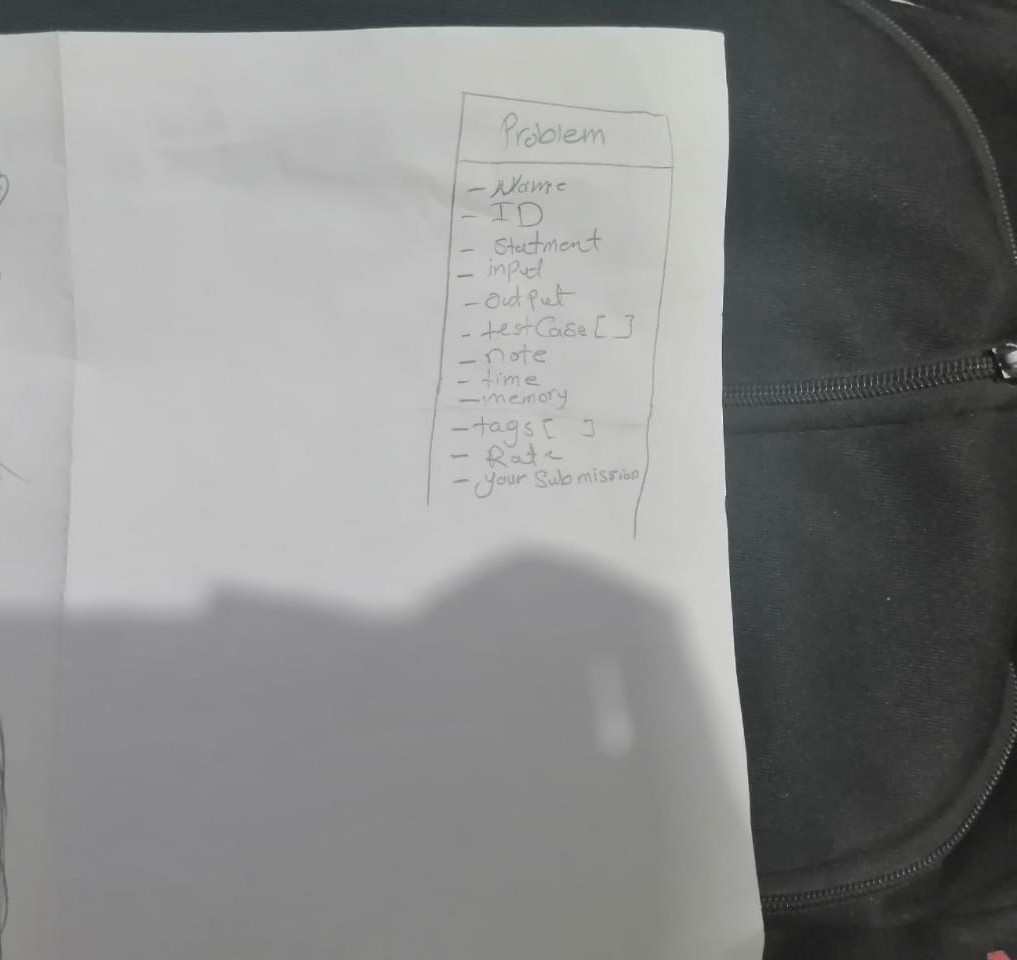 Problem
- Name
- ID
- Statment
- input
- output
- testCase [ ]
- note
- time
- memory
- tags [ ]
- Rate
- your Submission